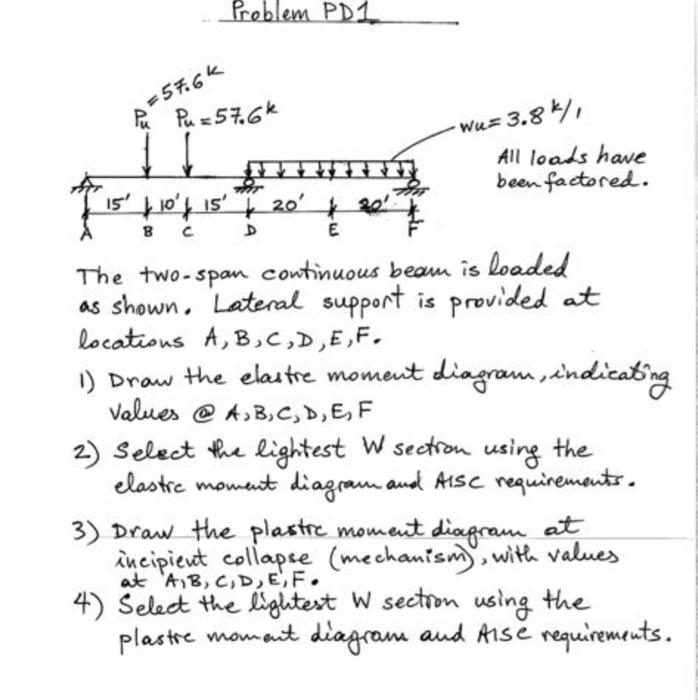 Problem PD1
Pu =57.6k
Pu =57.6k
wu= 3.8 k/'
All loads have
been factored.
15' 10' 15' 20' 20'
A B C D E F
The two-span continuous beam is loaded
as shown. Lateral support is provided at
locations A,B,C,D,E,F.
1) Draw the elastic moment diagram, indicating
values @ A,B,C,D,E,F
2) Select the lightest W section using the
elastic moment diagram and AISC requirements.
3) Draw the plastic moment diagram at
incipient collapse (mechanism), with values
at A,B,C,D,E,F.
4) Select the lightest W section using the
plastic moment diagram and AISC requirements.